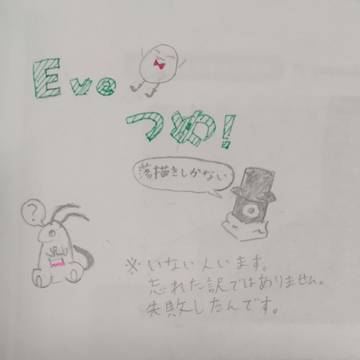 Eve
つめ!
落描きしかない
?
※いない人います。
忘れた訳ではありません。
失敗したんです。